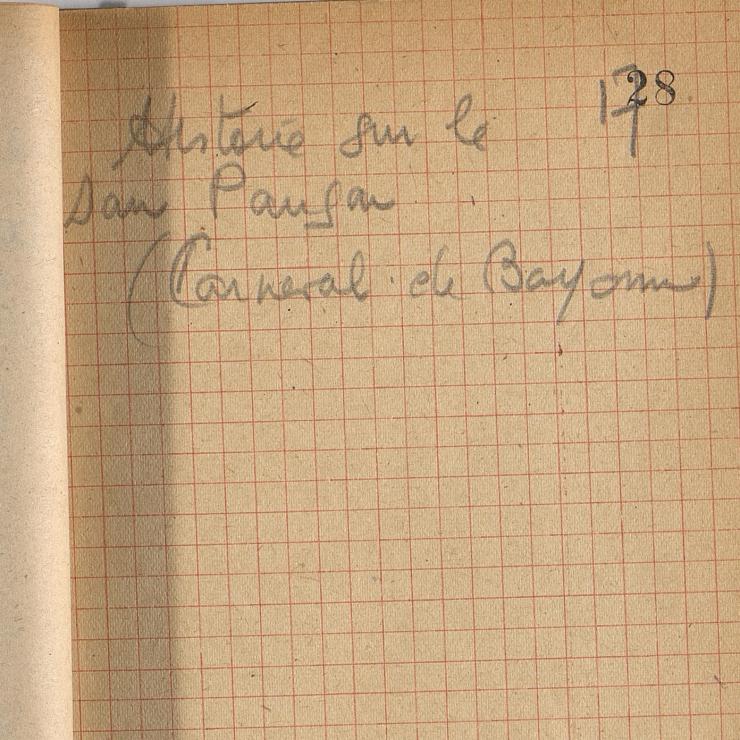 Histoire sur le 17 28
San Pansar
(Carnaval de Bayonne)